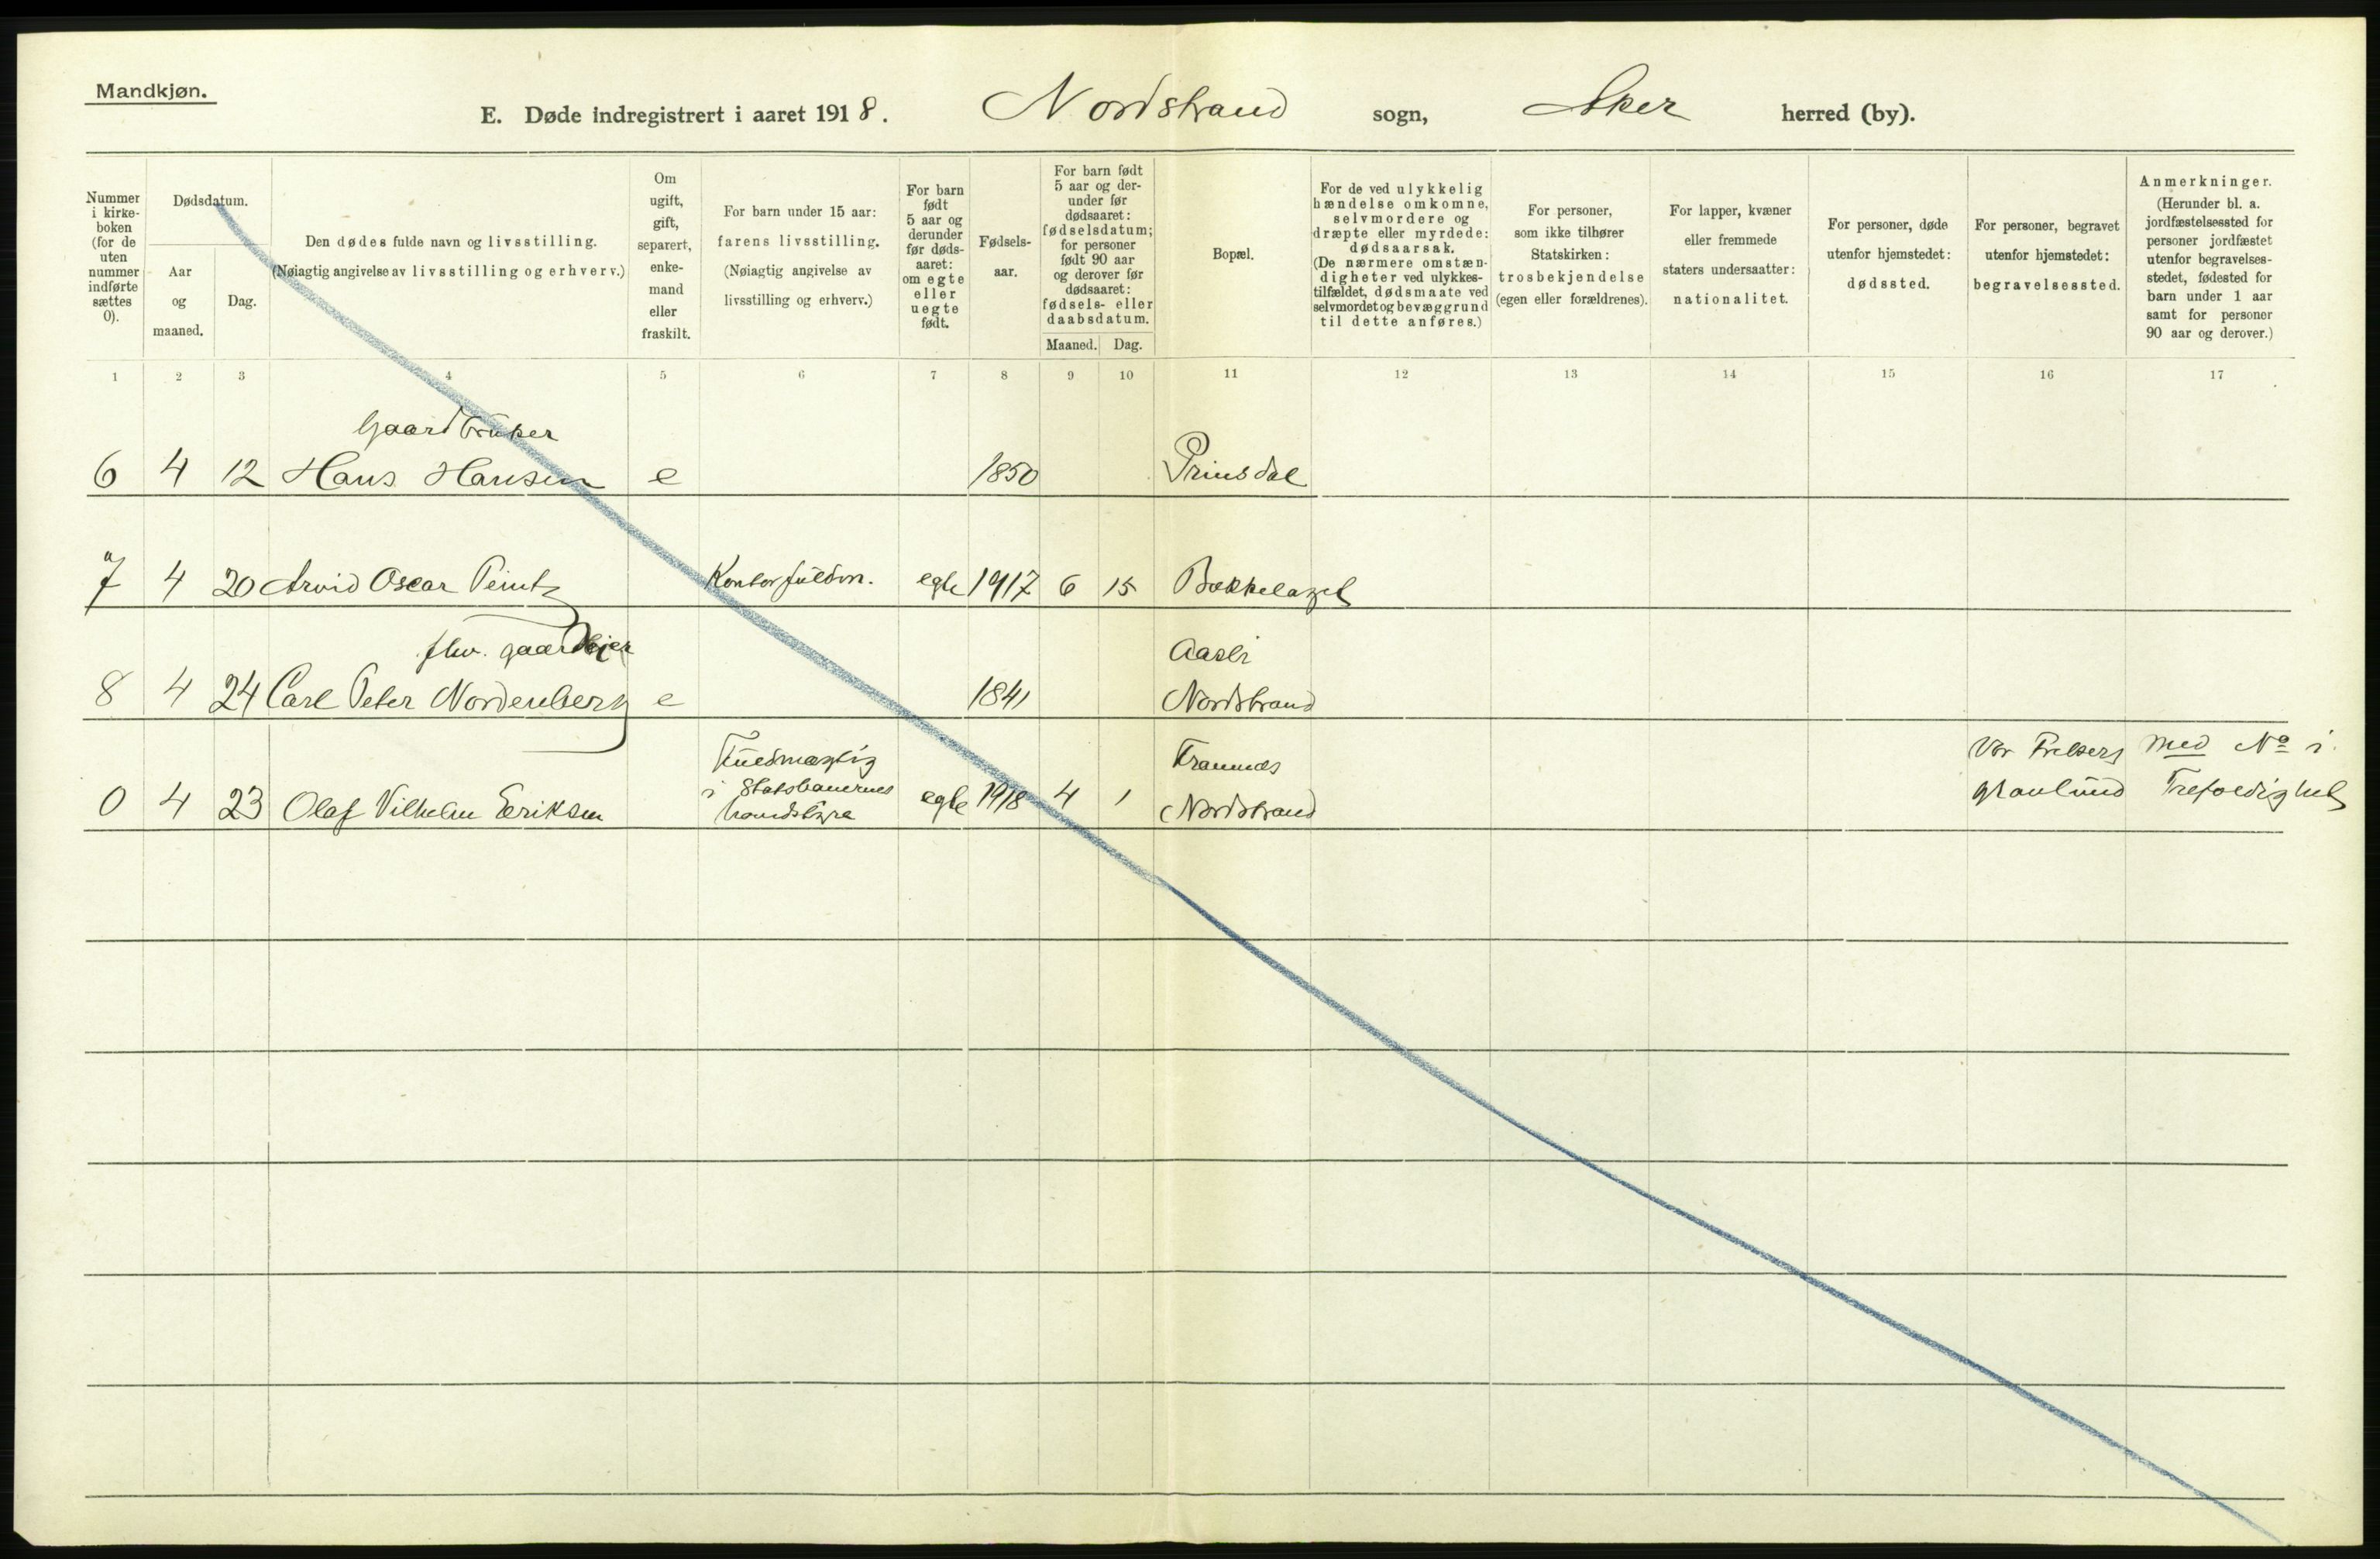 Mandkjøn.
E. Døde indregistrert i aaret 1918. Nordstrand sogn, Aker herred (by).
Nummer i kirke-boken (for de uten nummer indførte sættes 0).
Dødsdatum.
Aar og maaned.
Dag.
Den dødes fulde navn og livsstilling.
(Nøiagtig angivelse av livsstilling og erhverv.)
Om ugift, gift, separert, enke-mand eller fraskilt.
For barn under 15 aar: farens livsstilling. (Nøiagtig angivelse av livsstilling og erhverv.)
For barn født 5 aar og derunder før døds-aaret: om egte eller uegte født.
Fødsels-aar.
For barn født 5 aar og der-under før dødsaaret: fødselsdatum; for personer født 90 aar og derover før dødsaaret: fødsels- eller daabsdatum.
Maaned. Dag.
Bopæl.
For de ved ulykkelig hændelse omkomne, selvmordere og dræpte eller myrdede: dødsaarsak. (De nærmere omstæn-digheter ved ulykkes-tilfældet, dødsmaate ved selvmordet og bevæggrund til dette anføres.)
For personer, som ikke tilhører Statskirken: trosbekjendelse (egen eller forældrenes).
For lapper, kvæner eller fremmede staters undersaatter: nationalitet.
For personer, døde utenfor hjemstedet: dødssted.
For personer, begravet utenfor hjemstedet: begravelsessted.
Anmerkninger. (Herunder bl. a. jordfæstelsessted for personer jordfæstet utenfor begravelses-stedet, fødested for barn under 1 aar samt for personer 90 aar og derover.)
1 2 3 4 5 6 7 8 9 10 11 12 13 14 15 16 17
Gaardbruker
6 4 12 Hans Hansen e 1850 Prinsdal
7 4 20 Arvid Oscar Peintz Kontorfuldm. egte 1917 6 15 Bækkelaget
fhv. gaardeier Aasli
8 4 24 Carl Peter Nordenberg e 1841 Nordstrand
Fuldmægtig Framnæs Vor Frelsers med No i
i Statsbanernes
0 4 23 Olaf Vilhelm Eriksen hovedstyre egte 1918 4 1 Nordstrand gravlund Trefoldighet